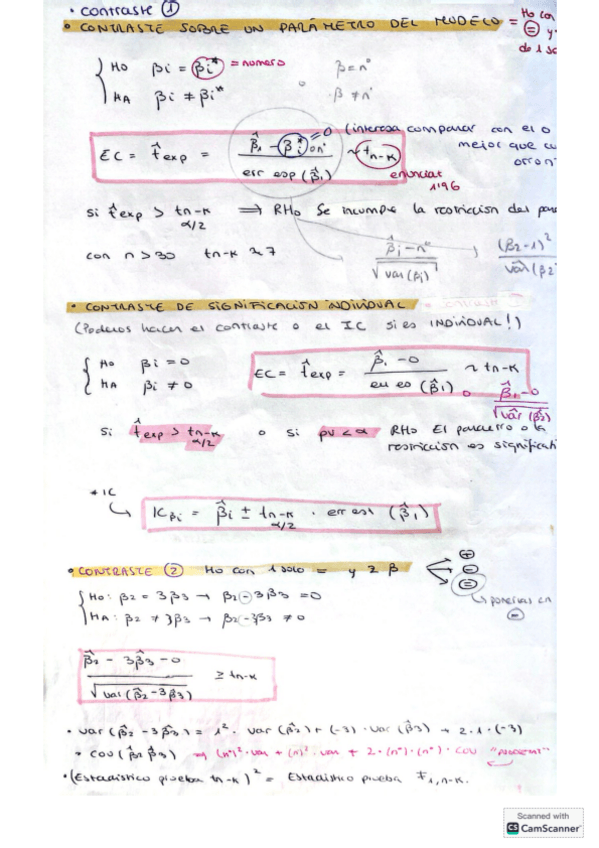 • Contraste ①
• CONTRASTE SOBRE UN PARÁMETRO DEL MODELO = Ho con
= y
de 1 so
Ho βi = βi* = numero
β = nº
HA βi ≠ βi*
o
β ≠ nº
EC = t̂exp = β̂1 - βi* o nº / err esp (β̂1) ~ tn-k
= 0 (interesa comparar con el 0
mejor que cu
enunciar
1'96
si t̂exp > tn-k α/2 ⟹ RHo Se incumple la restricción del par
con n > 30 tn-k ≈ 7
β̂i - nº / √var(βi)
(β2-1)² / vâr(β2
• CONTRASTE DE SIGNIFICACIÓN INDIVIDUAL
(Podemos hacer el contraste o el IC si es INDIVIDUAL!)
Ho βi = 0
HA βi ≠ 0
EC = t̂exp = β̂1 - 0 / err es (β̂1) ~ tn-k
o β̂1 - 0 / √vâr(β̂2)
si t̂exp > tn-k α/2 o si pv < α RHo El parámetro o la
restricción es significati
* IC
ICβi = β̂i ± tn-k α/2 · err est (β̂1)
• CONTRASTE ② Ho con 1 solo = y 2 β
+
-
=
ponerlas en
-
Ho: β2 = 3β3 → β2 - 3β3 = 0
HA: β2 ≠ 3β3 → β2 - 3β3 ≠ 0
β̂2 - 3β̂3 - 0 / √var(β̂2 - 3β3) ≥ tn-k
• var(β̂2 - 3β̂3) = 1² · var(β̂2) + (-3) · var(β̂3) + 2·1·(-3)
* cov(β̂2 β̂3) ⇒ (nº)² · var + (nº)² · var + 2·(nº)·(nº)·cov
• (Estadístico prueba tn-k)² = Estadístico prueba F1,n-k.
Scanned with
CS CamScanner